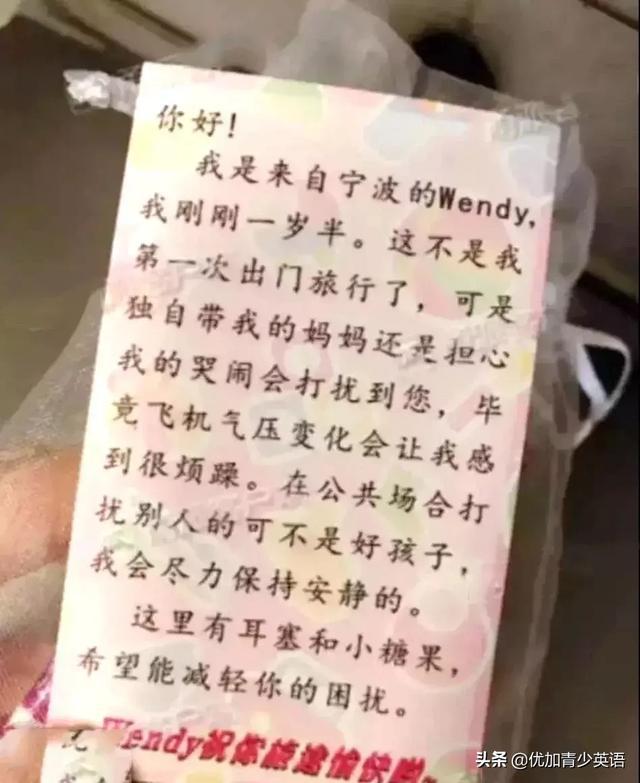 你好!
我是来自宁波的Wendy,
我刚刚一岁半。这不是我
第一次出门旅行了，可是
独自带我的妈妈还是担心
我的哭闹会打扰到您，毕
竟飞机气压变化会让我感
到很烦躁。在公共场合打
扰别人的可不是好孩子，
我会尽力保持安静的。
这里有耳塞和小糖果，
希望能减轻你的困扰。
Wendy祝你旅途愉快哟
头条@优加青少英语